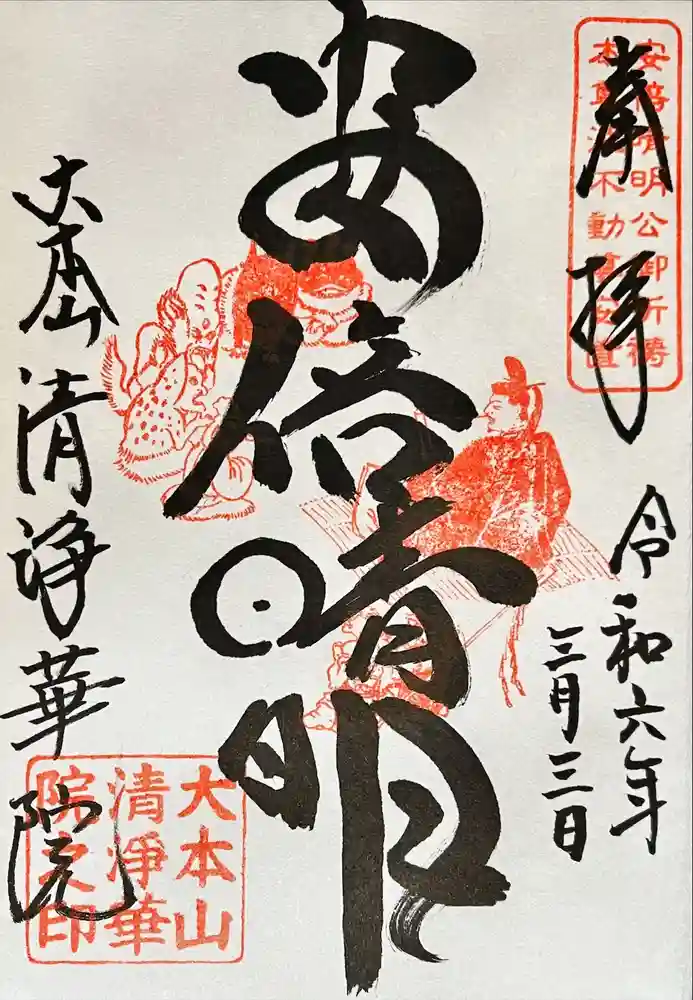 奉拝
安倍晴明公御祈祷
令和六年
三月三日
安倍晴明
大本山清浄華院
大本山
清浄華
院之印